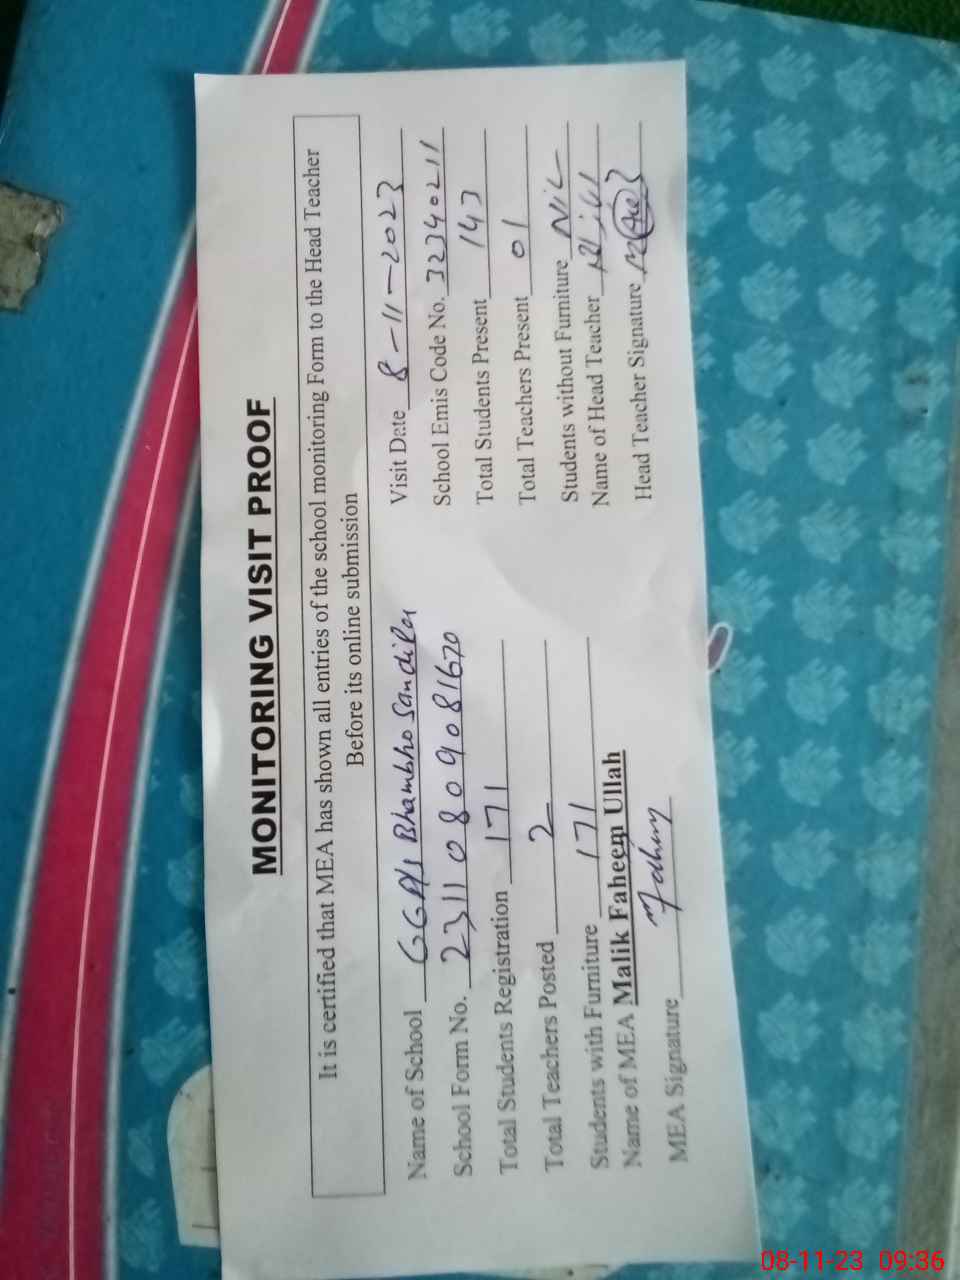 MONITORING VISIT PROOF
It is certified that MEA has shown all entries of the school monitoring Form to the Head Teacher
Before its online submission
Name of School GGPS Bhambho Sandila Visit Date 8-11-2023
School Form No. 23110809081670 School Emis Code No. 32340211
Total Students Registration 171 Total Students Present 143
Total Teachers Posted 2 Total Teachers Present 01
Students with Furniture 171 Students without Furniture NIL
Name of MEA Malik Faheem Ullah Name of Head Teacher
MEA Signature Head Teacher Signature
08-11-23 09:36